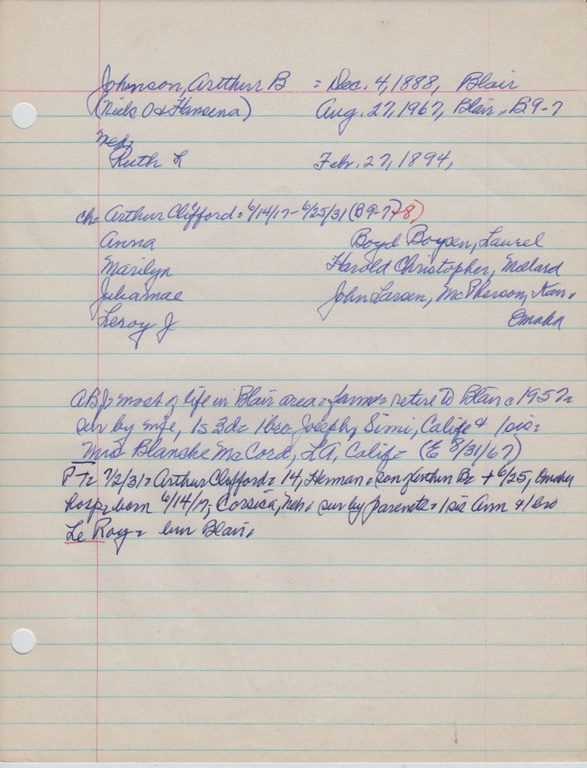 Johnson, Artthur B = Dec. 4, 1888, Blair
(Niels O & Hansena) Aug. 27, 1967, Blair = B9-7
Ned=
Ruth L Feb. 27, 1894,
ch= Arthur Clifford = 6/14/17 - 6/25/31 (B9-7+8)
Anna Boyd Boysen, Laurel
Marilyn Harold Christopher, Mallard
Julia mae John Larsen, McPherson, Kan.
Leroy J Omaha
ABJ= most of life in Blair area= farm= retire to Blair c 1957=
sur by wife, 1s 3d= 1 bro Joseph, Simi, Calif & 1 sis=
Mrs Blanshe McCord, LA, Calif= (E 8/31/67)
PT= 7/2/31= Arthur Clifford= 14, Herman = son of Arthur B= + 6/25, Omaha
hosp= born 6/14/17, Corsica, Neb. sur by parents= 1 sis Ann & 1 bro
Le Roy= bur Blair.